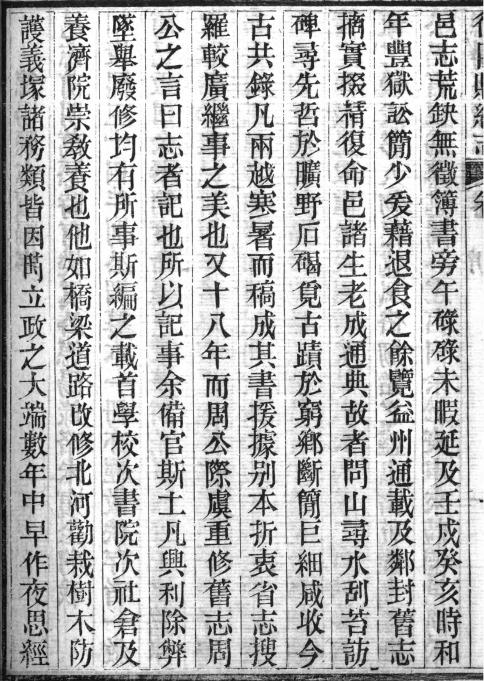 邑志荒缺無徵簿書旁午碌碌未暇延及壬戌癸亥時和
年豐獄訟簡少爰藉退食之餘覽益州通載及鄰封舊志
摘實掇精復命邑諸生老成通典故者問山尋水刮苔訪
碑尋先哲於曠野石碣覓古蹟於窮鄉斷簡巨細咸收今
古共錄凡兩越寒暑而稿成其書援據别本折衷省志搜
羅較廣繼事之美也又十八年而周公際虞重修舊志周
公之言曰志者記也所以記事余備官斯土凡興利除弊
墜舉廢修均有所事斯編之載首學校次書院次社倉及
養濟院崇教養也他如橋梁道路改修北河勸栽樹木防
護義塚諸務類皆因旹立政之大端數年中早作夜思經